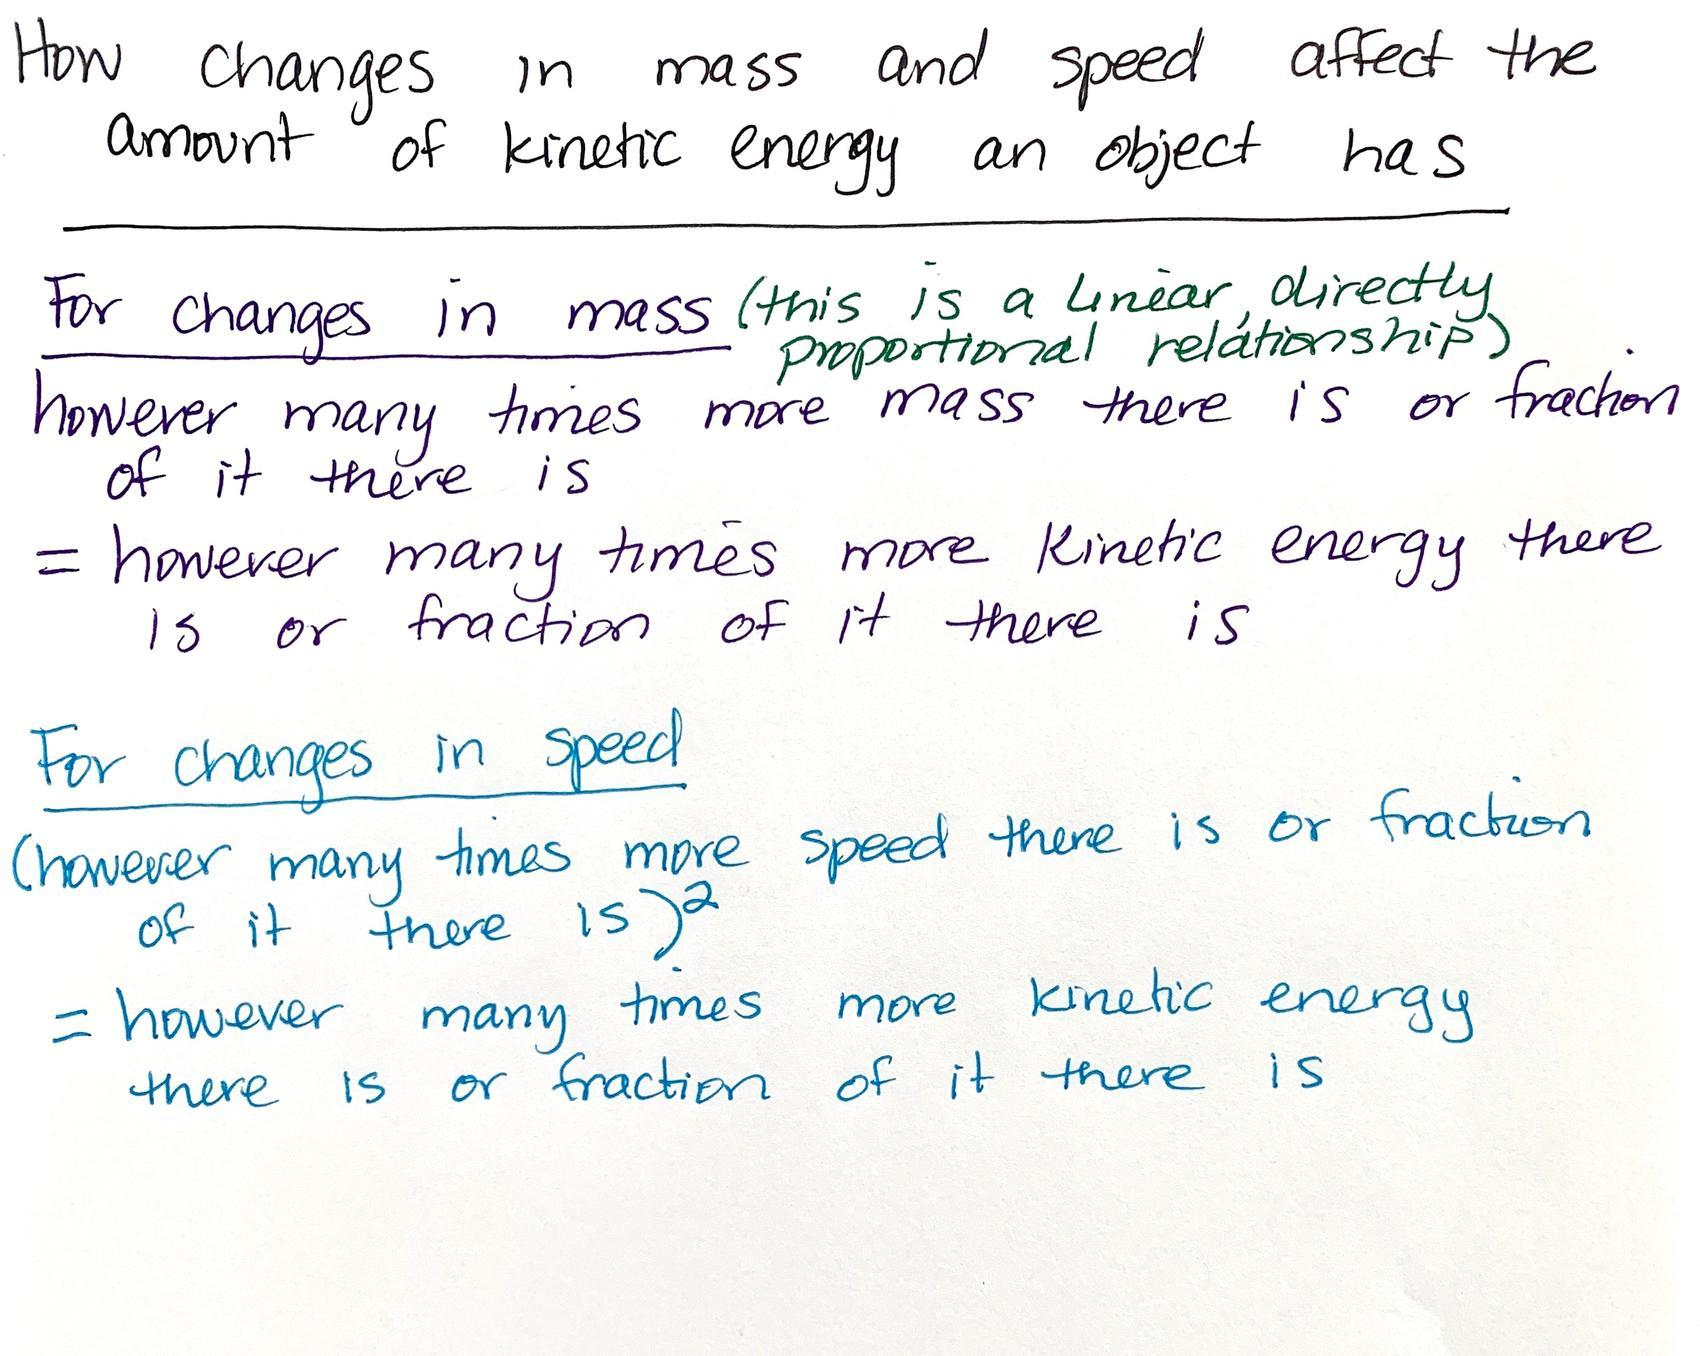 How changes in mass and speed affect the
amount of kinetic energy an object has
For changes in mass (this is a linear, directly
proportional relationship)
however many times more mass there is or fraction
of it there is
= however many times more kinetic energy there
is or fraction of it there is
For changes in speed
(however many times more speed there is or fraction
of it there is)²
= however many times more kinetic energy
there is or fraction of it there is